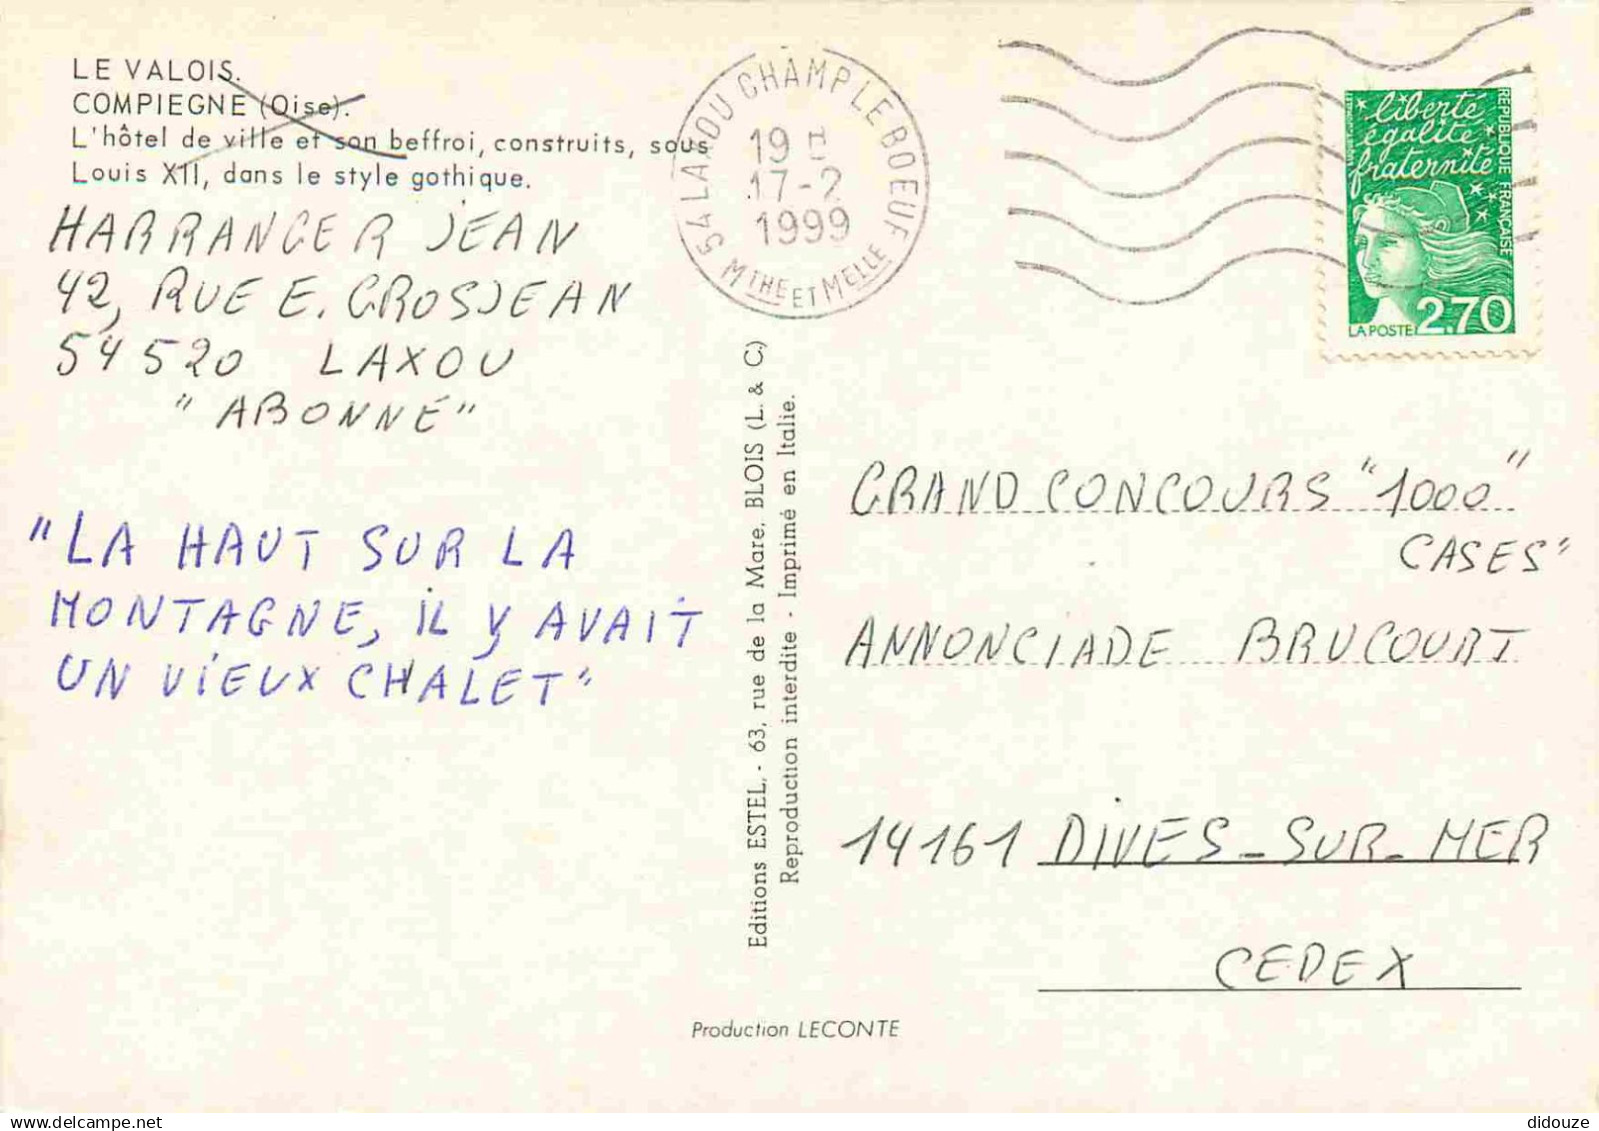 LE VALOIS.
COMPIEGNE (Oise).
L'hôtel de ville et son beffroi, construits, sous
Louis XII, dans le style gothique.
HARRANGER JEAN
42, RUE E. GROSJEAN
54520 LAXOU
"ABONNÉ"
"LA HAUT SUR LA
MONTAGNE, IL Y AVAIT
UN VIEUX CHALET"
54 LAXOU CHAMP LE BOEUF
19 H
17-2
1999
MTHE ET MELLE
Editions ESTEL, - 63, rue de la Mare, BLOIS (L. & C.)
Reproduction interdite - Imprimé en Italie.
Production LECONTE
liberté
égalité
fraternité
REPUBLIQUE FRANÇAISE
LA POSTE 2,70
GRAND CONCOURS "1000"
CASES"
ANNONCIADE BRUCOURT
14161 DIVES-SUR-MER
CEDEX
delcampe.net
didouze